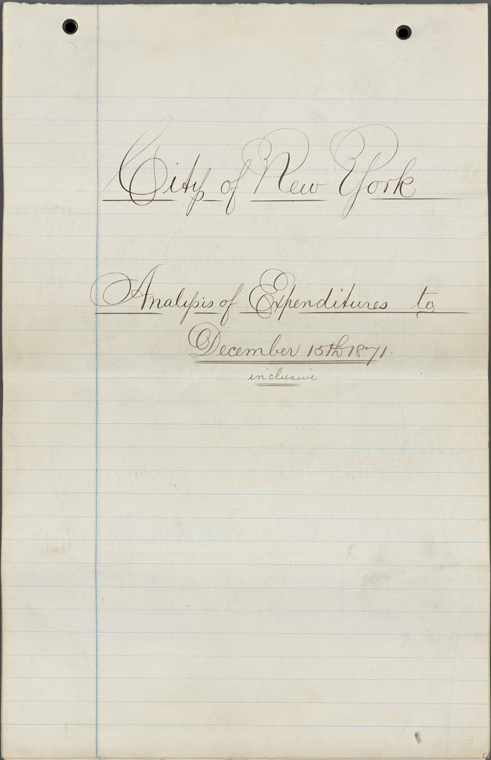 City of New York
Analysis of Expenditures to
December 15th 1871.
inclusive